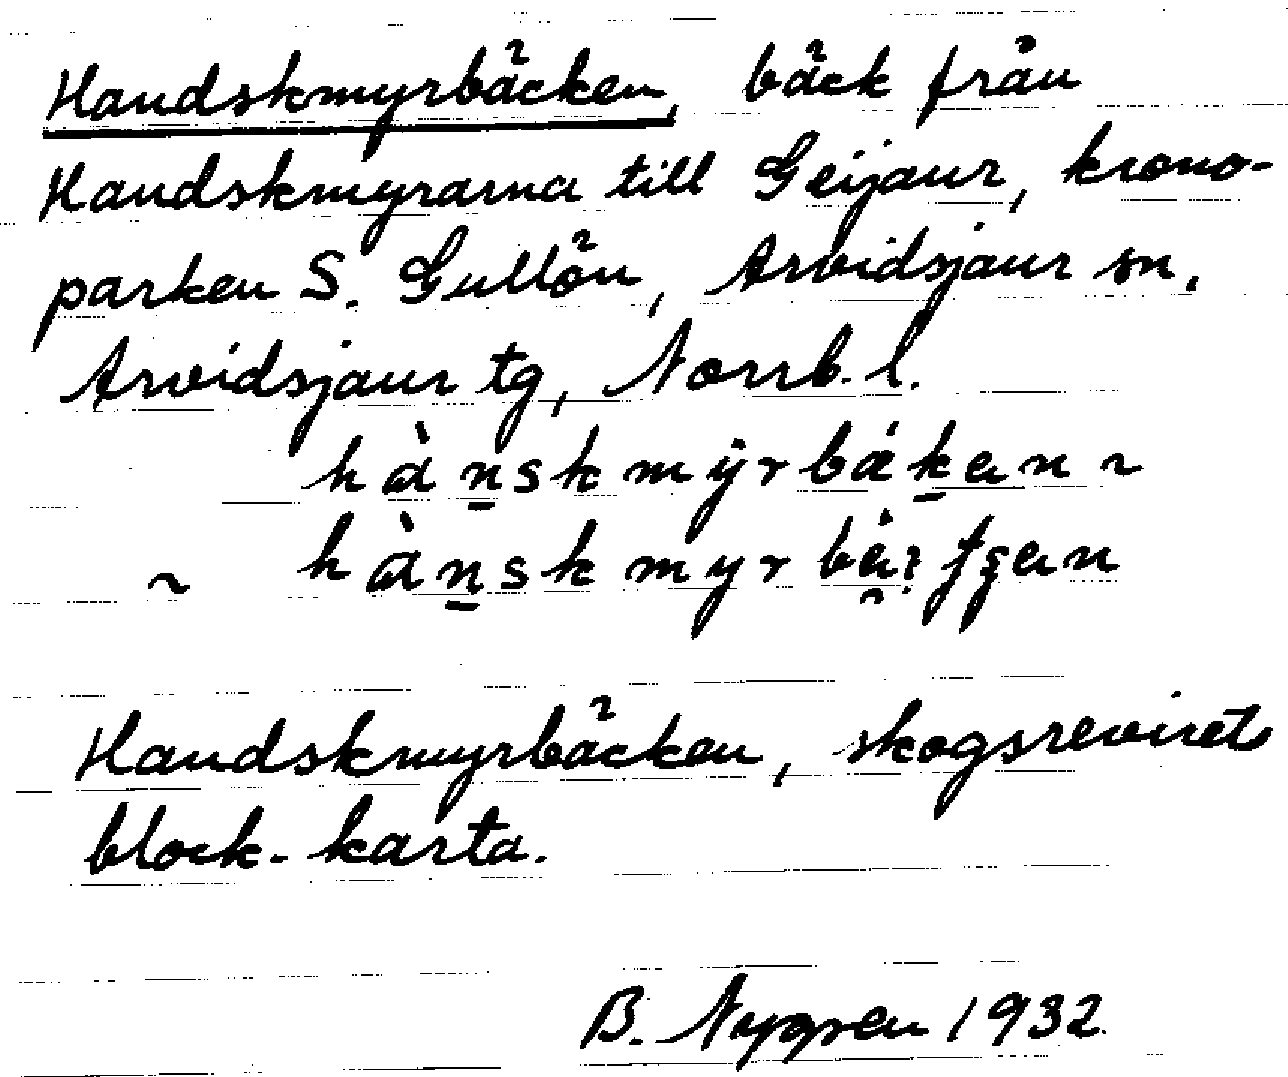 Handskmyrbäcken, bäck från
Handskmyrarna till Geijaur, krono-
parken S. Gullön, Arvidsjaur sn,
Arvidsjaur tg, Norrb. l.
hànskmy̆rbákan ~
~
Handskmyrbäcken, skogsrevirets
block-karta.
B. Nygren 1932